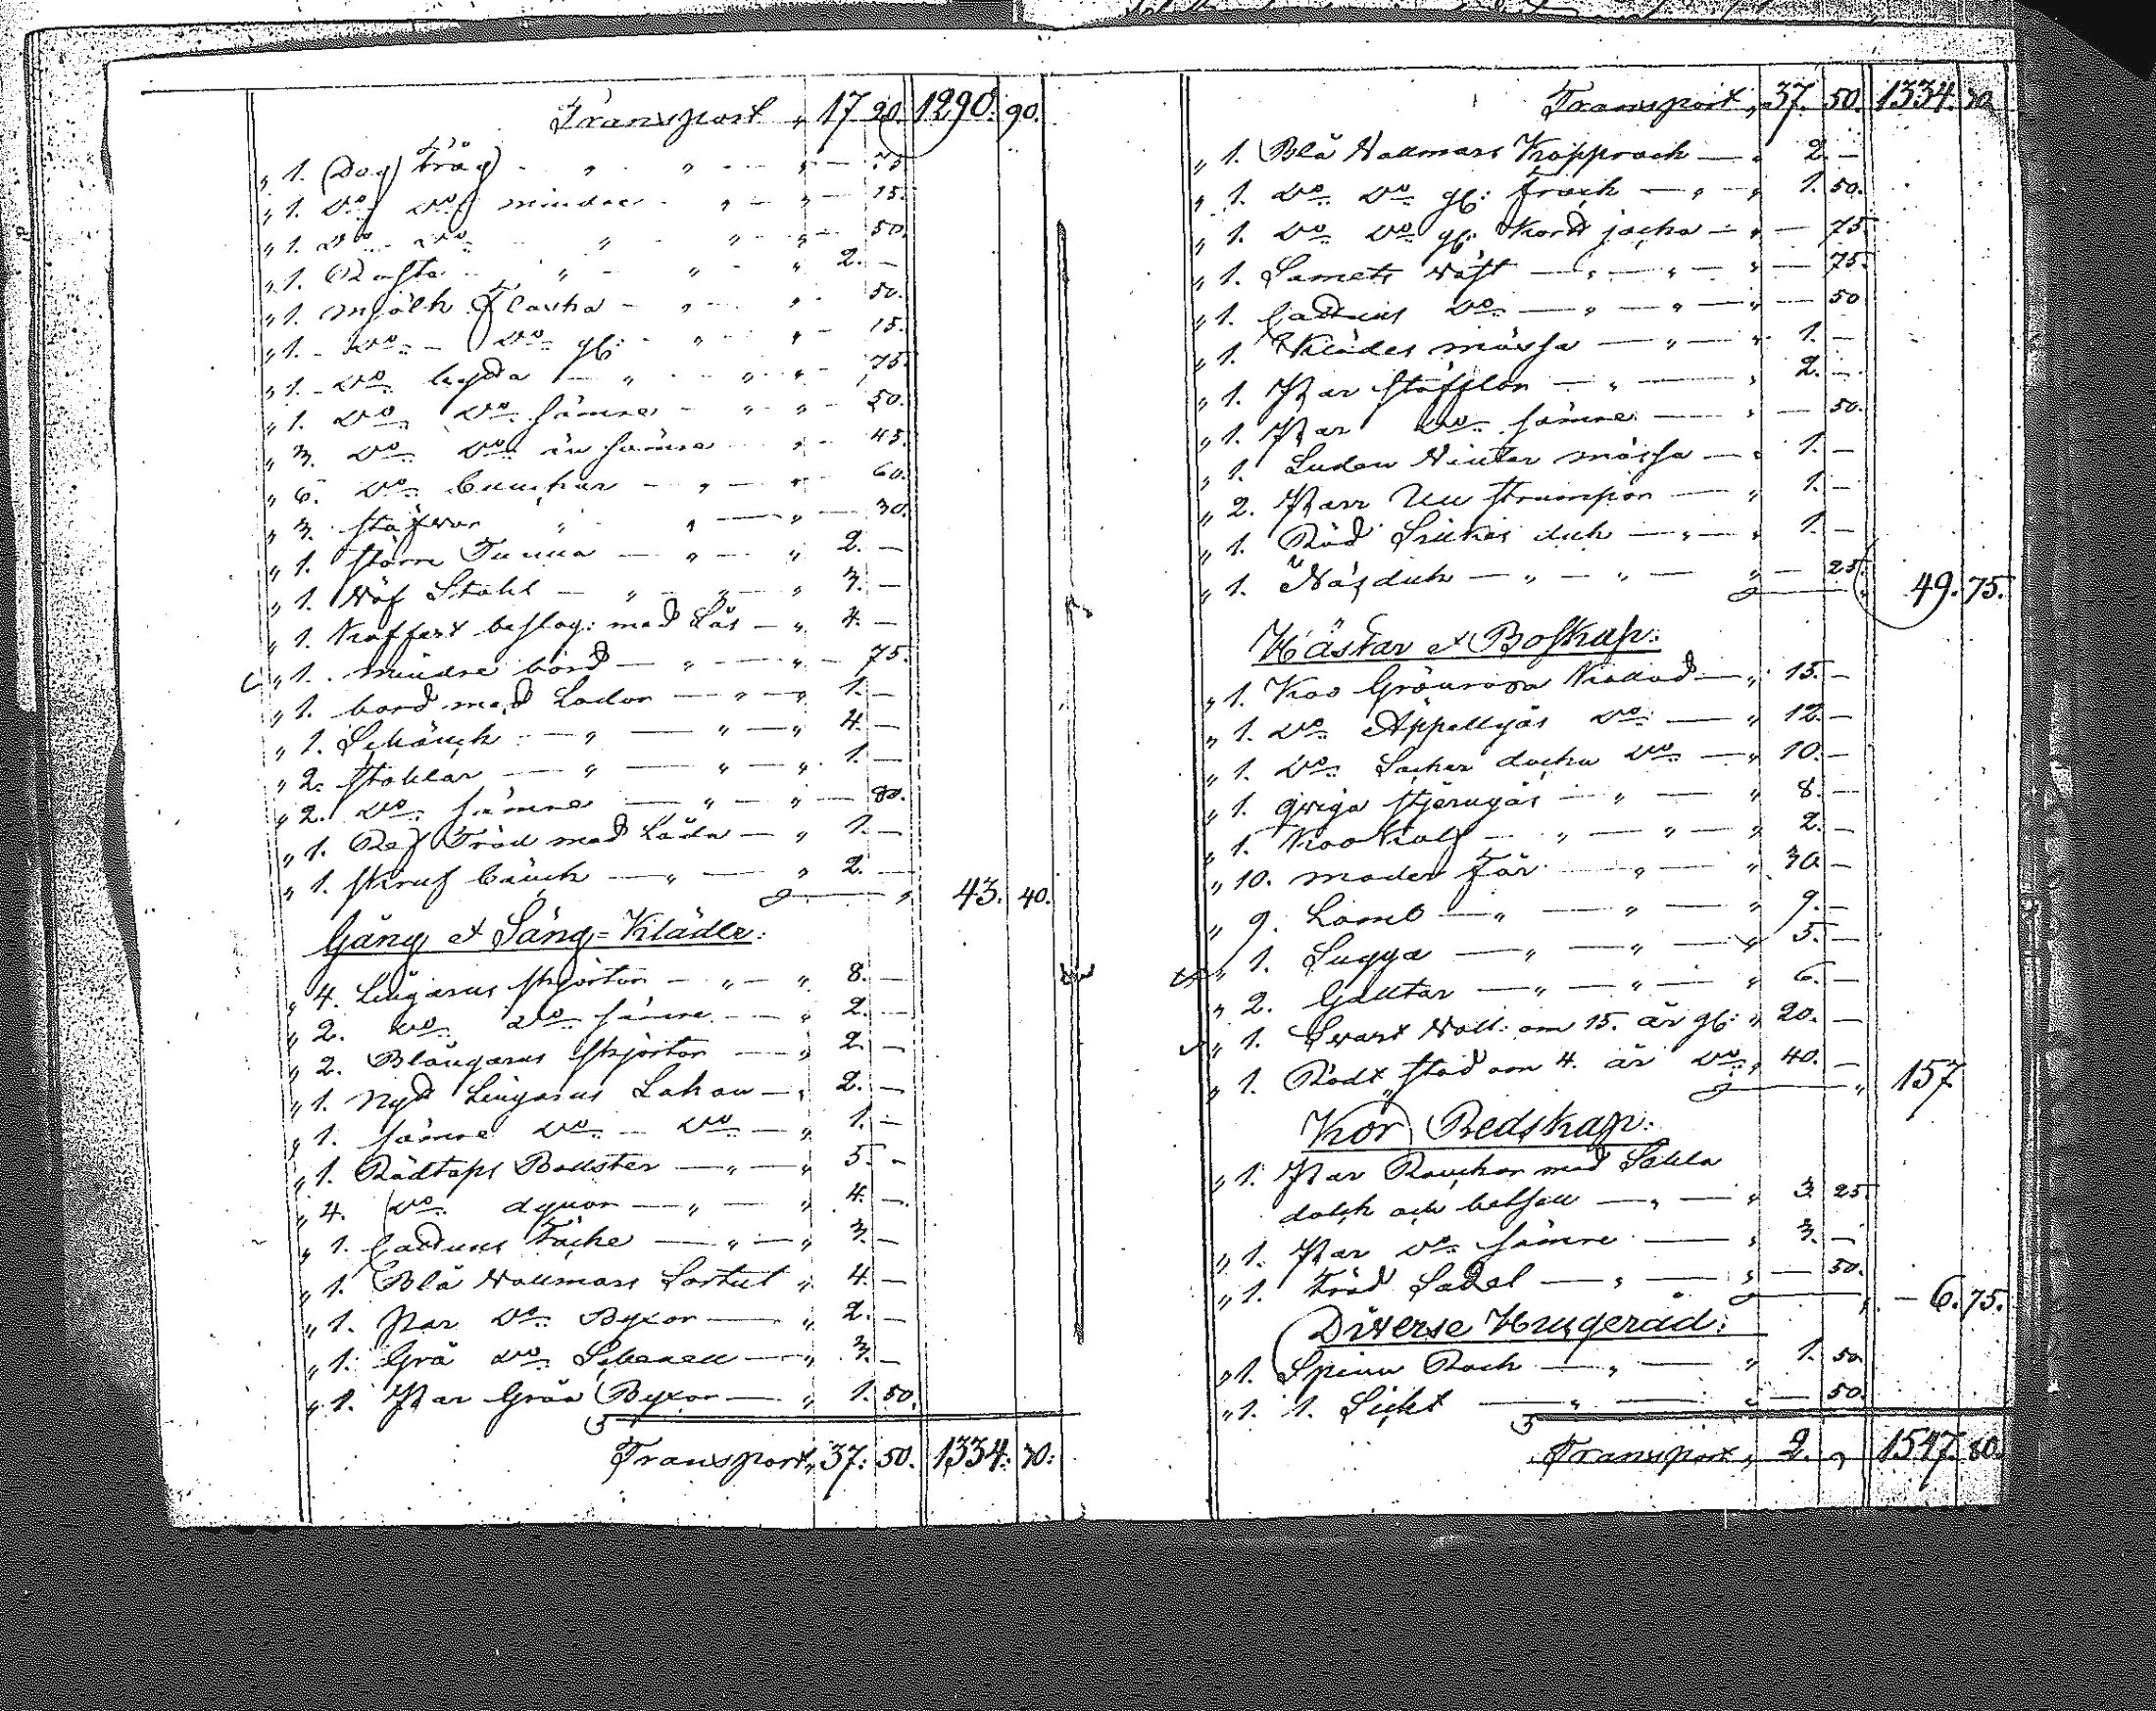 Transport " 17 20. 1290. 90.
" 1. Deg Tråg - " - " - - " - 75
" 1. do do mindre - " - " - 15.
" 1. do do - " - " - " - 50.
" 1. - " - " - " 2. -
" 1. mjölk Flaska - " - " - 50.
" 1. do do gl: - " - " - 15.
" 1. do bytta - " - " - " - 75.
" 1. do do sämre - " - " - 50.
" 3. do do än sämre - " - 45.
" 6. do bunkar - " - " - 60.
" 3. stäfvor " - " - " - 30.
" 1. större Tunna - " - " 2. -
" 1. Väf Stohl - " - " - " 3. -
" 1. Koffert beslag: med Lås - " 4. -
" 1. mindre bord - " - " - 75.
" 1. bord med Lador - " - " 1. -
" 1. Schänck - " - " - " 4. -
" 2. stohlar - " - " - " 1. -
" 2. do sämre - " - " - 80.
" 1. med Låda - " 1. -
" 1. skruf bänck - " - " 2. -
" 43. 40.
Gång et Säng=Kläder:
" 4. Lingarns skjortor - " - " 8. -
" 2. do do sämre - " 2. -
" 2. Blångarns skjortor - " 2. -
" 1. nytt Lingarns Lakan - " 2. -
" 1. sämre do - do - " 1. -
" 1. Bollster - " - " 5. -
" 4. do dynor - " - " 4. -
" 1. Cattuns Täcke - " - " 3. -
" 1. Blå Vallmars Sortut " 4. -
" 1. Par do Byxor - " 2. -
" 1. Grå do - " 3. -
" 1. Par Gråa Byxor - " 1. 50.
Transport " 37. 50. 1334. 30.
Transport " 37. 50. 1334. 30.
" 1. Blå Vallmars Kapprock - " 2. -
" 1. do do gl: frack - " - " 1. 50.
" 1. do do gl: Kort jacka - " - 75.
" 1. Samets Väst - " - " - " - 75.
" 1. Cattuns do - " - " - " - 50
" 1. Klädes mössa - " - " 1. -
" 1. Par stöfflor - " - " 2. -
" 1. Par do sämre - " - 50.
" 1. Luden Vinter mössa - " 1. -
" 2. Parr Ull strumpor - " 1. -
" 1. Röd Silckes duk - " - " 1. -
" 1. Näsduk - " - " - " - 25.
49. 75.
Hästar et Boskap:
" 1. Koo Grönrosa Kallad - " 15. -
" 1. do Äppellgås do - " 12. -
" 1. do Socker docka do - " 10. -
" 1. qviga stjerngås - " - " 8. -
" 1. Koo Kalf - " - " - " 2. -
" 10. moder Får - " - " 30. -
" 9. Lamb - " - " - " 9. -
" 1. Sugga - " - " - " 5. -
" 2. Galltar - " - " - " 6. -
" 1. Svart Vall: om 15. år gl: " 20. -
" 1. Rödt stod om 4. år do " 40. -
" 157
Kör Redskap:
" 1. Par Ranckor med Sehla
dolck och betsell - " - " 3. 25.
" 1. Par do sämre - " 3. -
" 1. Träd Sadel - " - " - 50.
- 6. 75.
Diverse Husgeråd:
" 1. Spinn Rock - " - " 1. 50.
" 1. 1. Sickt - " - " - 50.
Transport " 2. " 1547. 80.